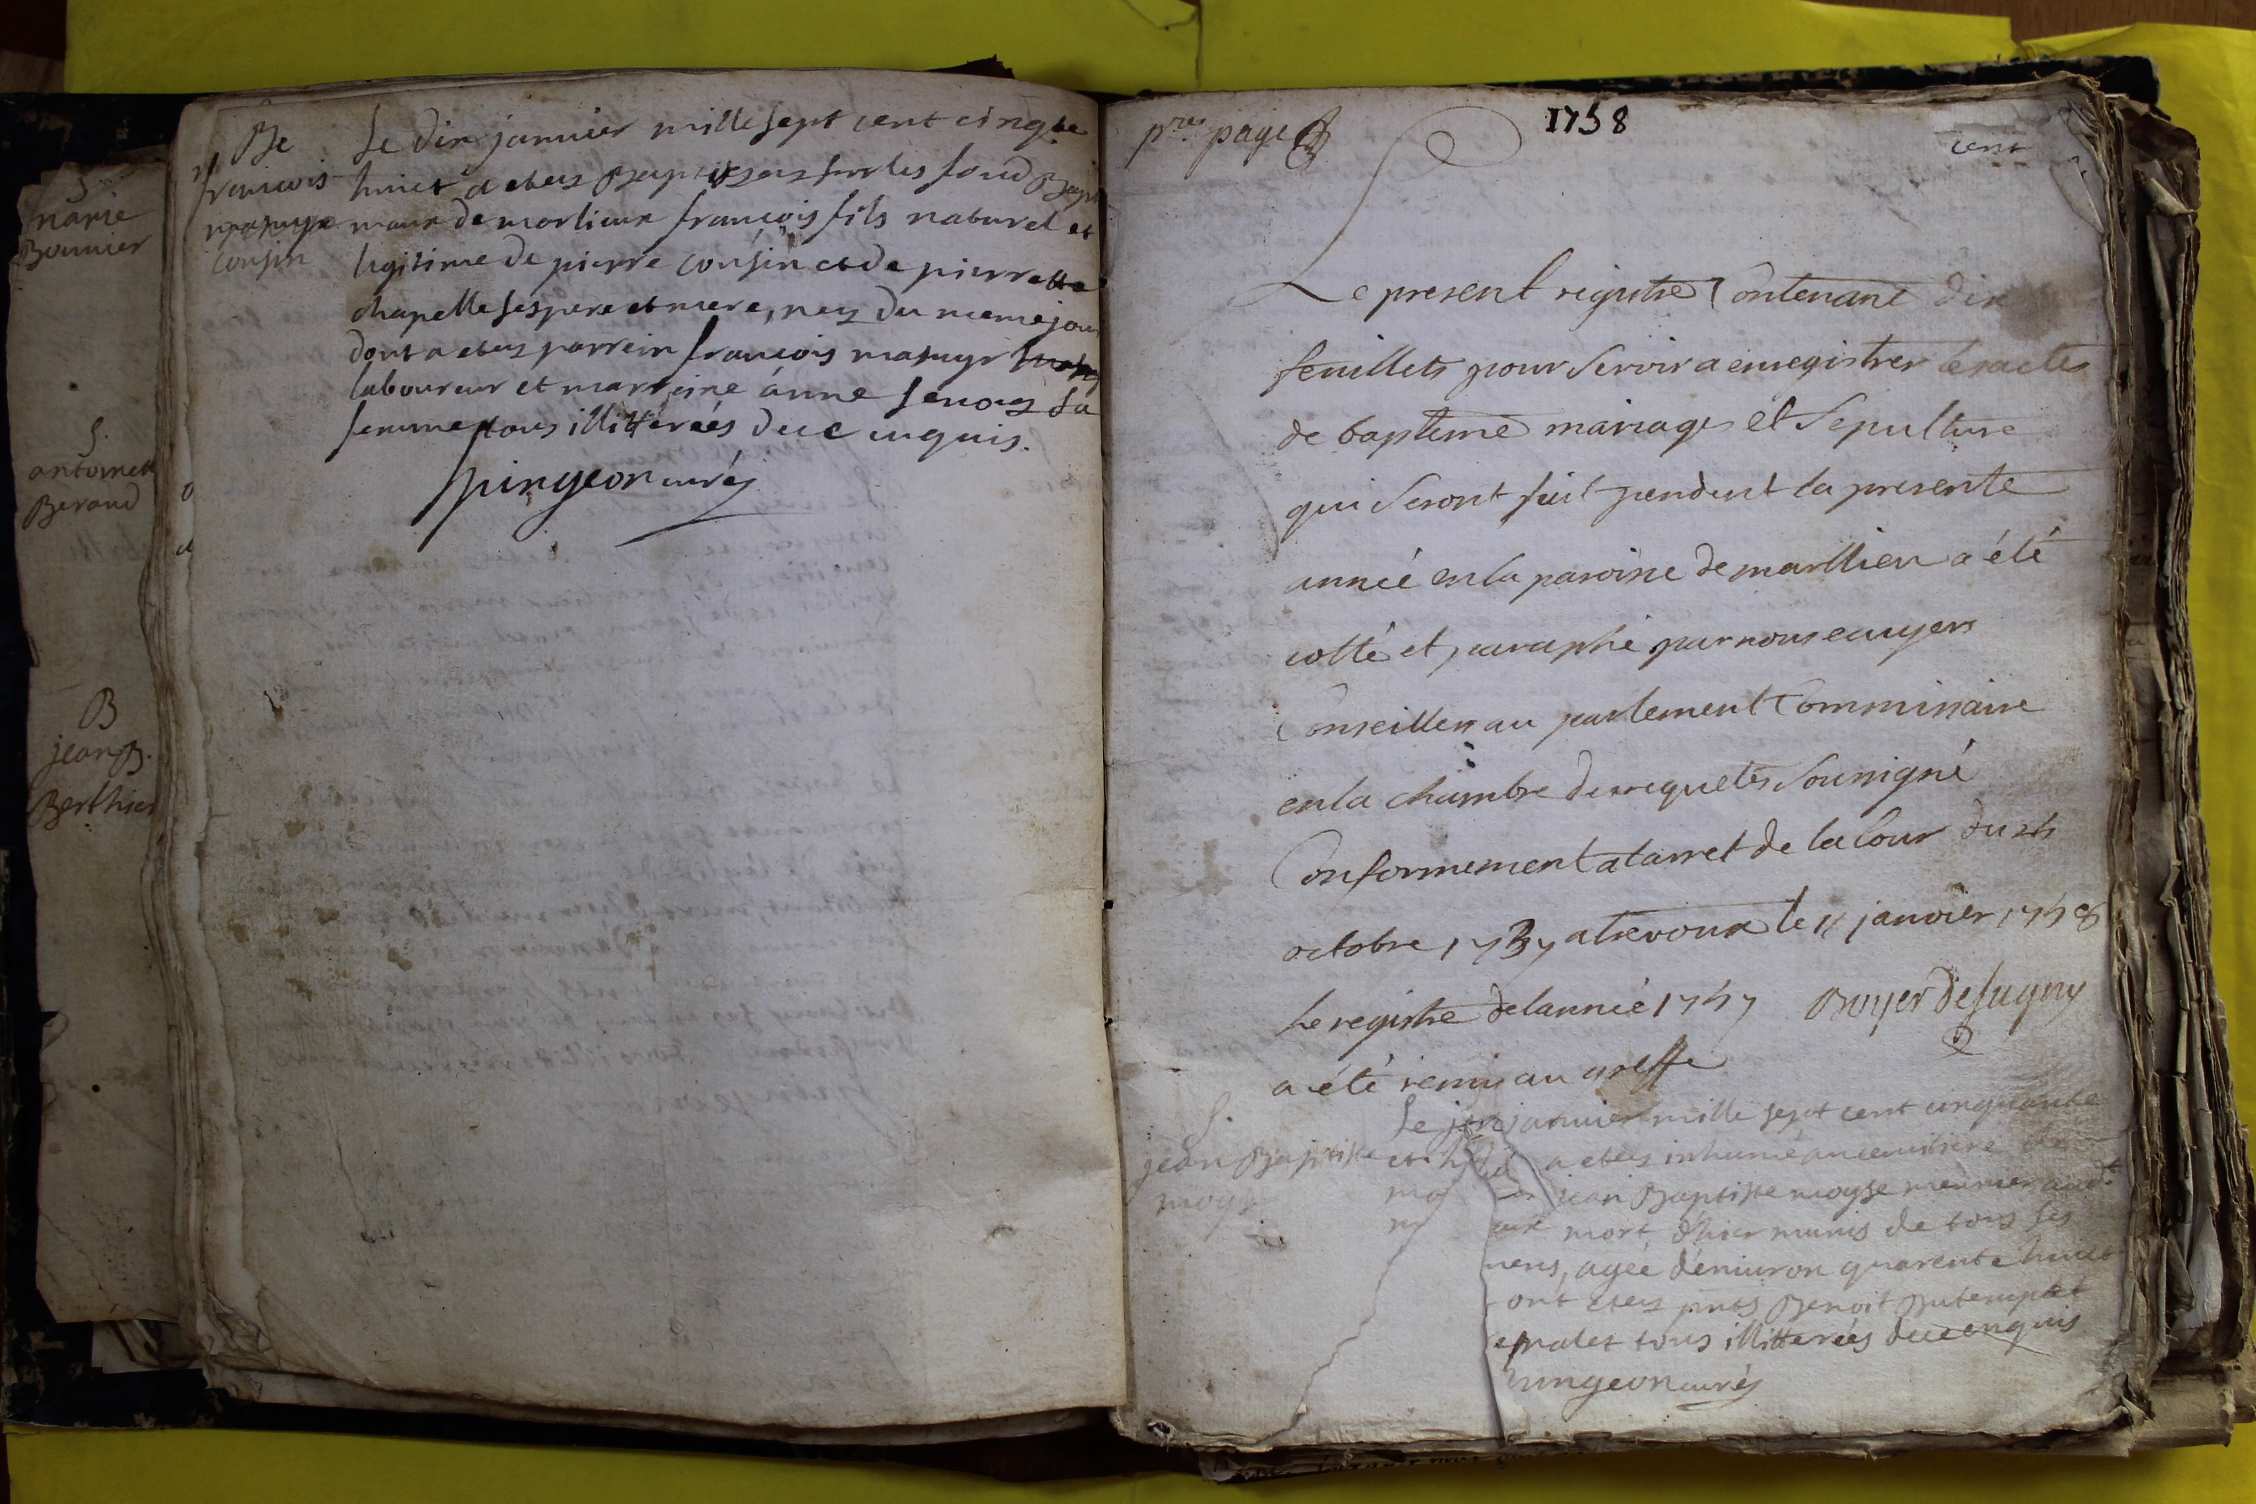 S.
marie
Bounier
S.
antoinett
Beraud
B
jean B.
Berthier
Be
francois
cousin
Le dix janvier mille sept cent cinqte
huict a etez Baptisez sur les fond Bapt
maux de morlieux françois fils naturel et
legitime de pierre cousin et de pierrette
chapelle ses pere et mere, nez du meme jour
dont a etez parrein françois
laboureur et marreine anne sa
femme tous illitterées de ce enquis.
pingeon curéz
pre page
1758
cent
Le present registre Contenant dix
feuillets pour servir a enregistrer les actes
de baptême mariages et Sepulture
qui seront fait pendant la presente
année en la paroisse de marllieu a été
cotté et paraphé par nous ecuyers
Conseiller au parlement Commissaire
en la chambre des requetes Soussigné
Conformement a larret de la Cour du 24
octobre 1737 a trevoux le 11 janvier 1758
Le registre de lannée 1757 Boyer de Sugny
a été remis au greffe
S.
jean Baptiste
moyse
Le janvier mille sept cent cinquante
et a etez inhumé au cemitiere de
jean Baptiste moyse meunier audt
mort d'hier munis de tous ses
agée d'enuiron quarente huict
ont etez pnts Benoit
tous illitterées de ce enquis
pingeon curéz